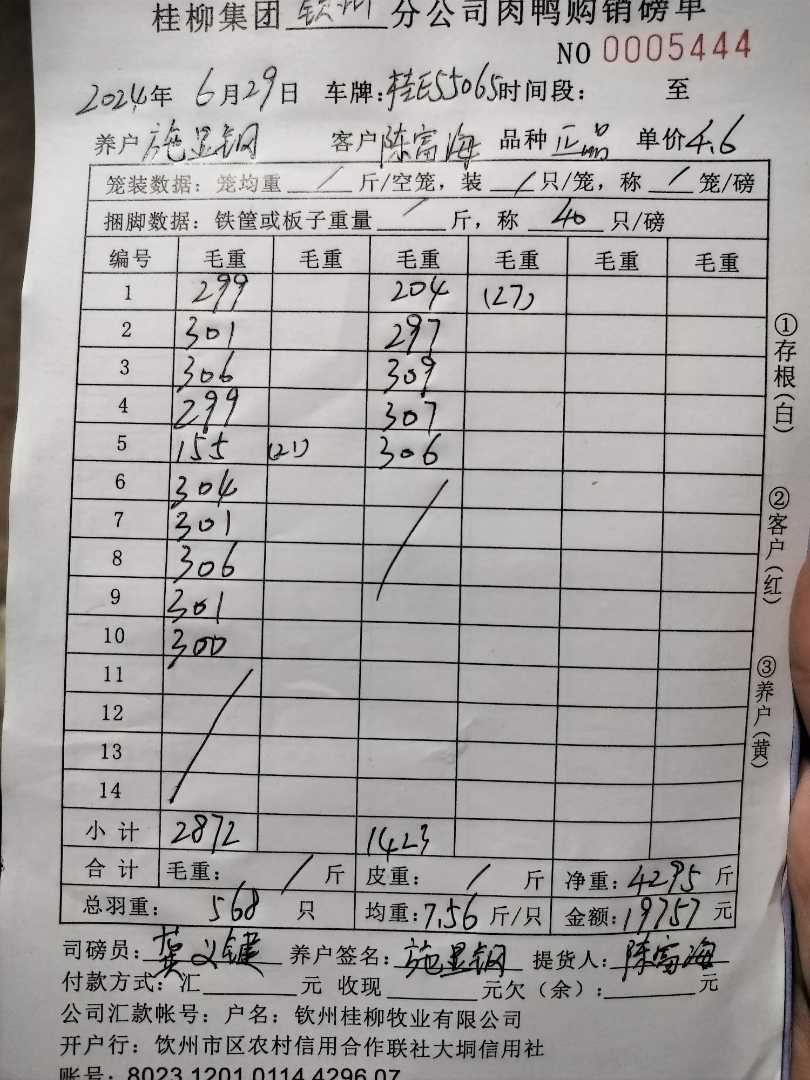 桂柳集团 钦州 分公司肉鸭购销磅单
NO 0005444
2024年 6月29日 车牌:桂E55065时间段: 至
养户 施显钢 客户 陈富海 品种 正品 单价 4.6
笼装数据: 笼均重 / 斤/空笼, 装 / 只/笼, 称 / 笼/磅
捆脚数据: 铁筐或板子重量 / 斤, 称 40 只/磅
编号 毛重 毛重 毛重 毛重 毛重 毛重
1 299 204 (27)
2 301 297
3 306 309
4 299 307
5 155 (21) 306
6 304
7 301
8 306
9 301
10 300
11
12
13
14
小计 2872 1423
合计 毛重: / 斤 皮重: / 斤 净重: 4295 斤
总羽重: 568 只 均重: 7.56 斤/只 金额: 19757 元
司磅员: 龚义键 养户签名: 施显钢 提货人: 陈富海
付款方式: 汇 元 收现 元欠(余): 元
公司汇款帐号: 户名: 钦州桂柳牧业有限公司
开户行: 饮州市区农村信用合作联社大垌信用社
账号: 8023 1201 0114 4296 07
①存根(白)
②客户(红)
③养户(黄)